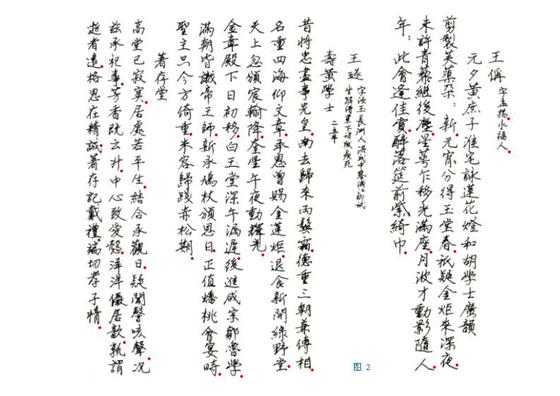 王偁 字孟揚永福人
元夕黄庶子淮宅詠蓮花燈和胡學士廣韻
剪製芙蕖朵朵新元宵分得玉堂春祇疑金炬來深夜
未許青藜繼後塵星彎乍移光滿座月波才動影隨人
年年此會逢佳賞醉落筵前紫綺巾
王璲 字汝玉長洲人洪武中舉浙江鄉試
坐解縉累下詔獄瘐死
壽黄學士 二首
昔將忠盡事先皇南去歸來兩鬢霜德重三朝業傅相
名重四海仰文章承恩曾賜金蓮炬退食新開緑野堂
天上忽頒宸翰降奎星午夜動輝光
金華殿下日初移白玉堂深午漏遲後進咸宗鄒魯學
滿朝皆識帝王師新承鳩杖頒恩日正值蟠桃會宴時
聖主只今方倚重未容歸踐赤松期
著存堂
高堂已寂寞居處若平生結合承觀日疑聞謦咳聲況
兹承祀事芳香既云升中心致愛慤洋洋儼居歆孰謂
逝者遠格思在精誠著存記戴禮端切孝子情
图 2